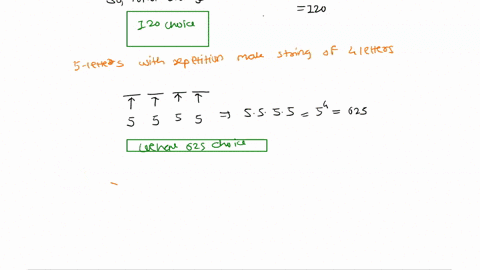 = 120
120 choice
5-letters with repetition make string of 4 letters
5 5 5 5 ⇒ 5.5.5.5 = 5^4 = 625
where 625 choice